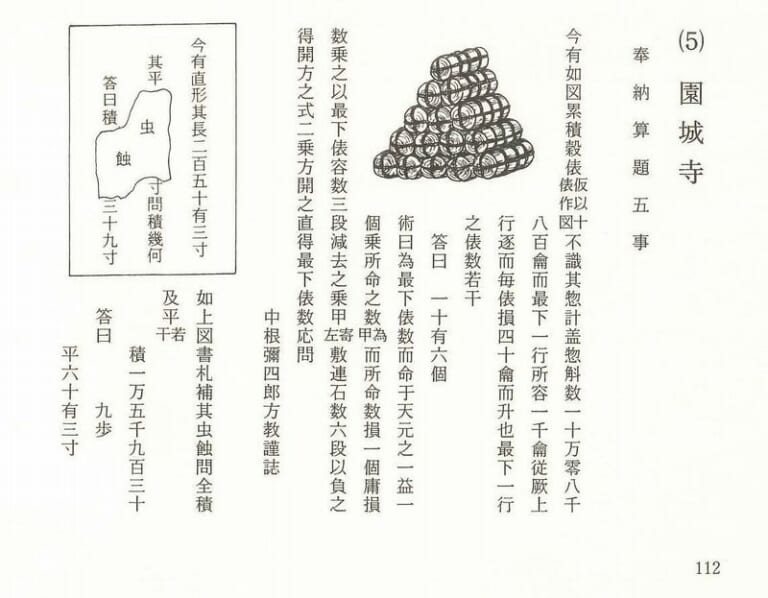 (5) 園城寺
奉納算題五事
今有如図累積穀俵仮以十俵作図不識其惣計盖惣斛数一十万零八千
八百龠而最下一行所容一千龠従厥上
行逐而毎俵損四十龠而升也最下一行
之俵数若干
答曰 一十有六個
術曰為最下俵数而命于天元之一益一
個乗所命之数為甲而所命数損一個庸損
数乗之以最下俵容数三段減去之乗甲寄左敷連石数六段以負之
得開方之式二乗方開之直得最下俵数応問
中根彌四郎方教謹誌
今有直形其長二百五十有三寸
其平 寸問積幾何
虫
蝕
答曰積 三十九寸
如上図書札補其虫蝕問全積
及平若干
積一万五千九百三十
答曰 九歩
平六十有三寸
112